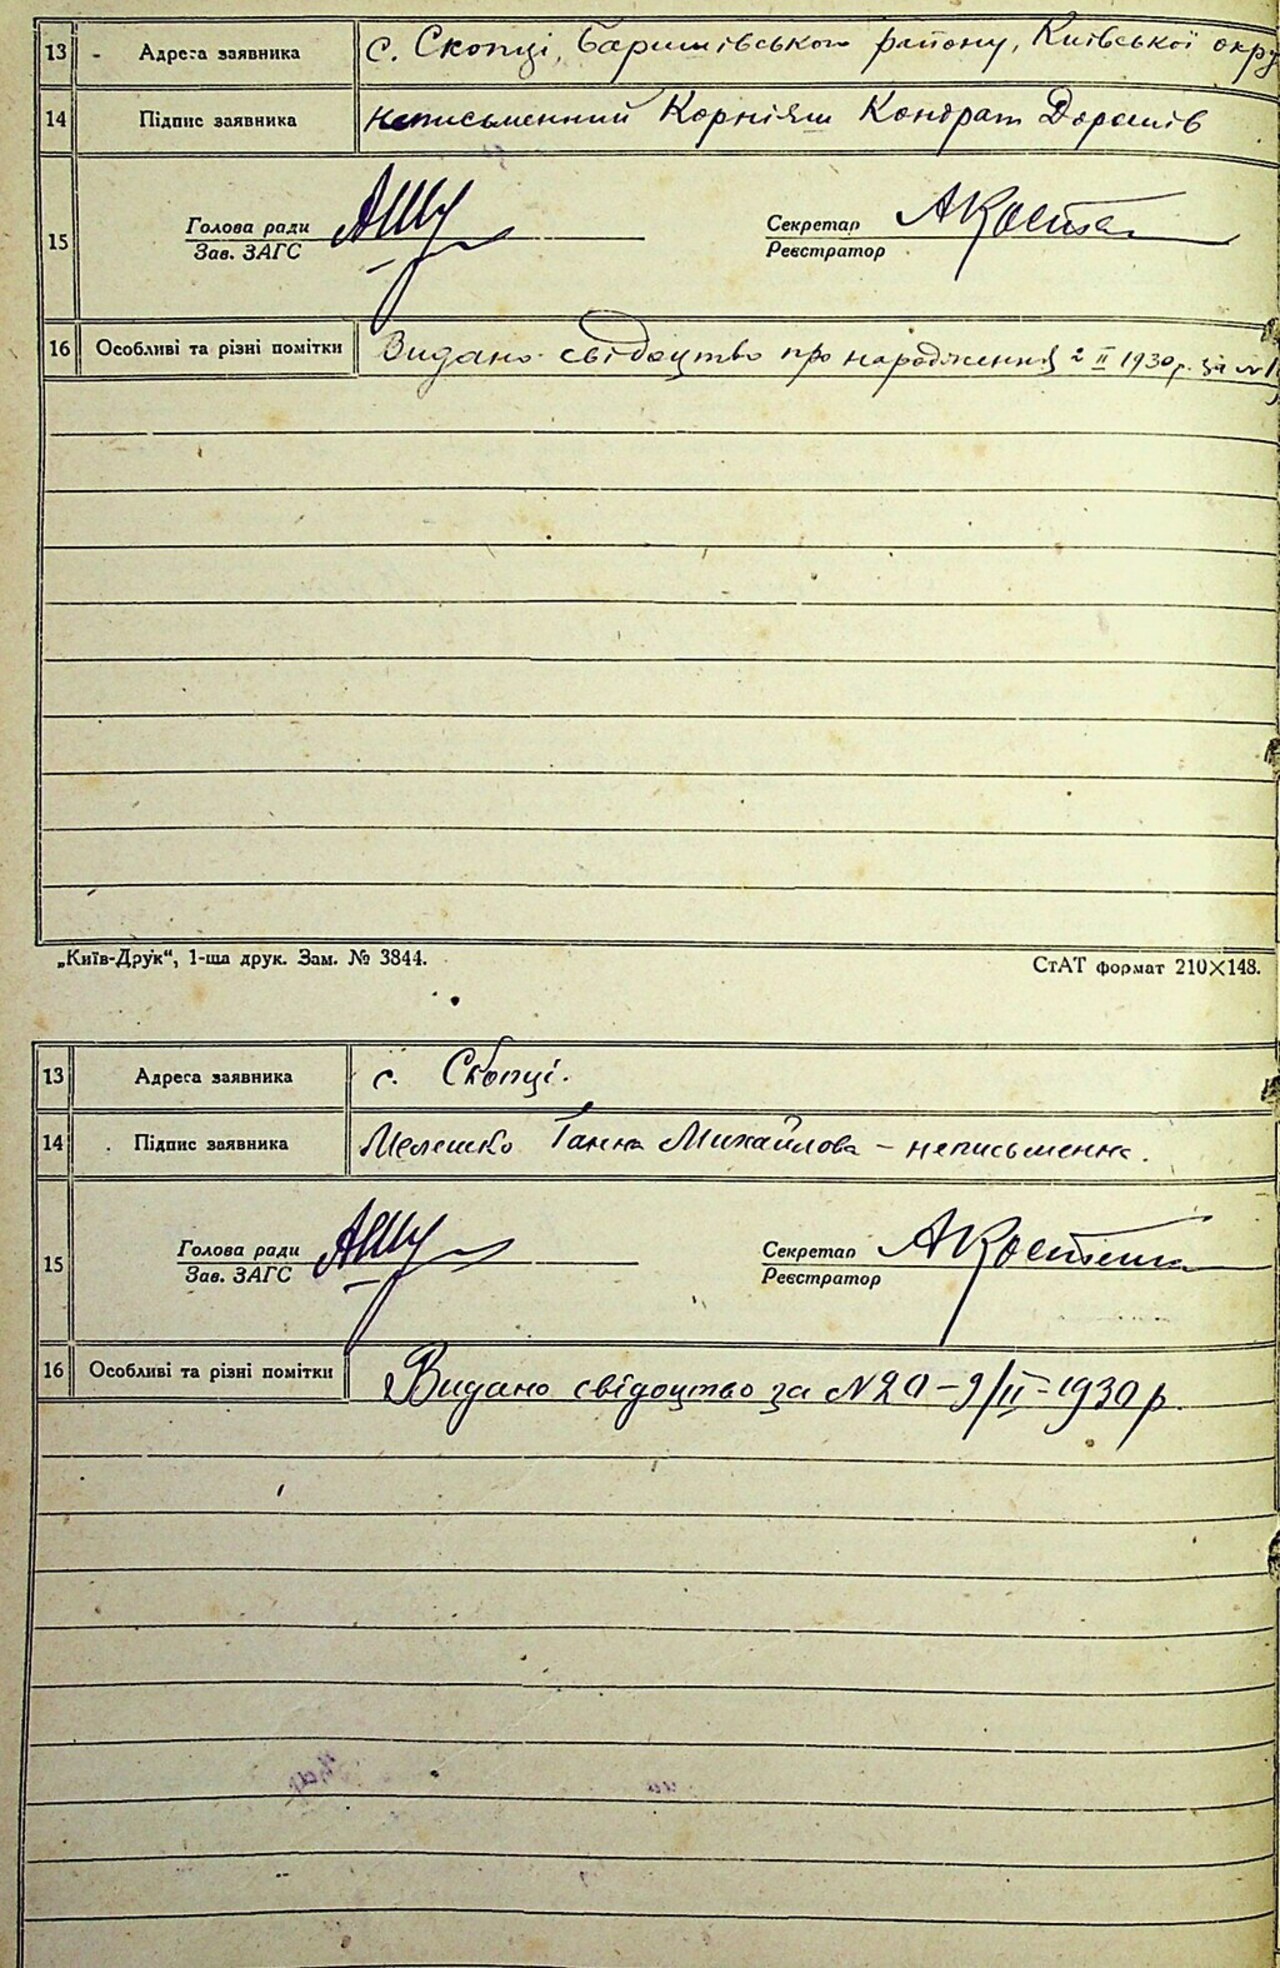 13 Адреса заявника с. Скопці, Баришівського району, Київської окр
14 Підпис заявника неписьменний Корніяш Кондрат Дорошів
15 Голова ради Секретар
Зав. ЗАГС Реєстратор
16 Особливі та різні помітки Видано свідоцтво про народження 2 II 1930 р. за №
„Київ-Друк“, 1-ша друк. Зам. № 3844. СтАТ формат 210×148.
13 Адреса заявника с. Скопці.
14 Підпис заявника Мелешко Ганна Михайлова – неписьменна.
15 Голова ради Секретар
Зав. ЗАГС Реєстратор
16 Особливі та різні помітки Видано свідоцтво за №20 – 9/II – 1930 р.